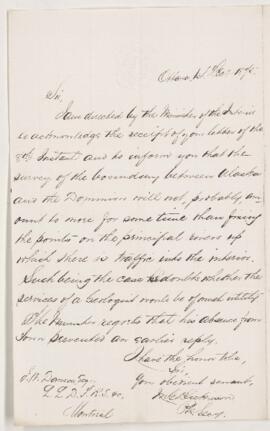 Sir,
I am directed by the Minister of the Interior
to acknowledge the receipt of your letter of the
8th Instant and to inform you that the
survey of the boundary between Alaska
and the Dominion will not, probably am
ount to more for some time than fixing
the points on the principal rivers up
which there is traffic into the interior.
Such being the case he doubts whether the
services of a Geologist would be of much utility
The Minister regrets that his absence from
Town prevented an earlier reply.
I have the honor to be,
Sir,
Your obedient servant,
J. W. Dawson Esq.
L L D. F. R. S. &c.
Montreal